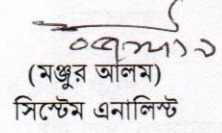 (মঞ্জুর আলম)
সিস্টেম এনালিস্ট